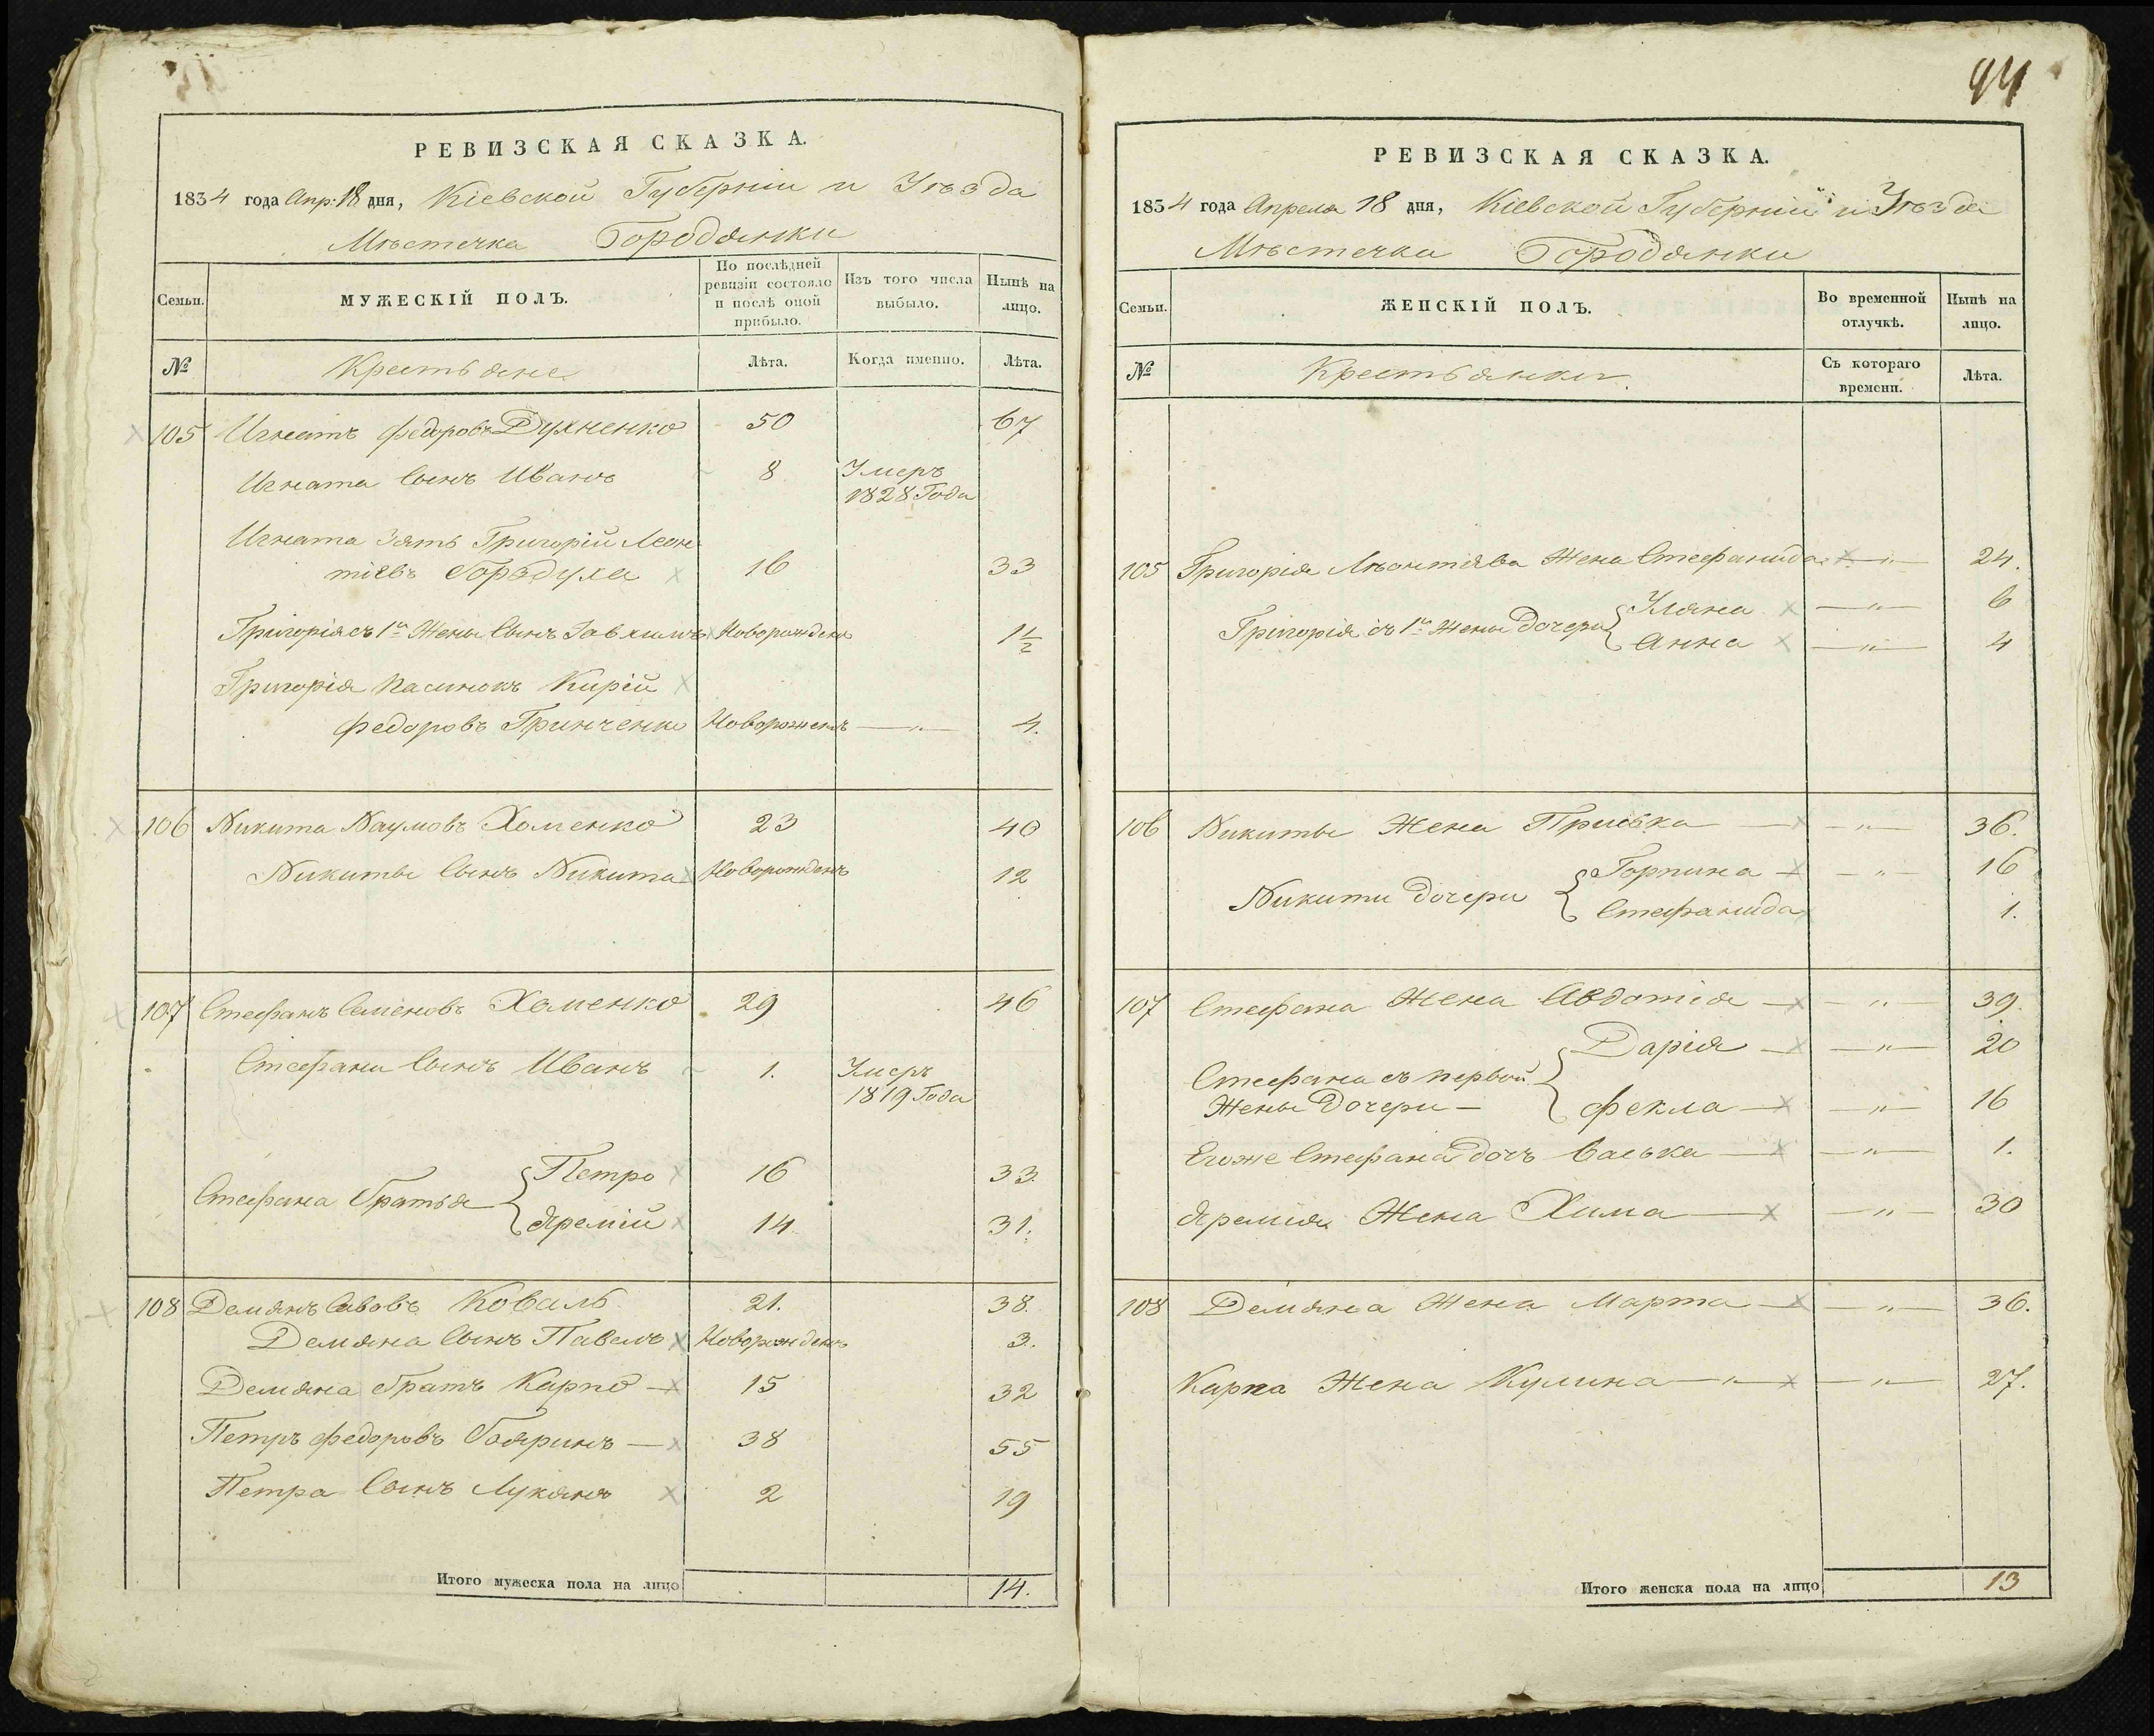 94
РЕВИЗСКАЯ СКАЗКА.
1834 года Апр: 18 дня, Кіевской Губерніи и Уѣзда
Мѣстечка Бородянки
Семьи.
МУЖЕСКІЙ ПОЛЪ.
По послѣдней ревизіи состояло и послѣ оной прибыло.
Изъ того числа выбыло.
Нынѣ на лицо.
№
Крестьяне
Лѣта.
Когда именно.
Лѣта.
105 Игнатъ Федоровъ Духненко 50 67
Игната Сынъ Иванъ 8 Умеръ
1828 Года
Игната Зять Григорій Леон
тіевъ 16 33
Григорія съ 1й Жены Сынъ Новорожденъ 1½
Григорія Пасинокъ Кирій
Федоровъ Гринченко Новорожденъ — " — 4.
106 Никита Наумовъ Хоменко 23 40
Никиты Сынъ Никита Новорожденъ 12
107 Стефанъ Семеновъ Хоменко 29 46
Стефана Сынъ Иванъ 1. Умеръ
1819 Года
Стефана Братья { Петро 16 33.
Яремій 14. 31.
108 Демянъ Савовъ Коваль 21. 38.
Демяна Сынъ Павелъ Новорожденъ 3.
Демяна Братъ Карпо — 15 32
Петръ Федоровъ Бояринъ — 38 55
Петра Сынъ Лукянъ 2 19
Итого мужеска пола на лицо 14.
РЕВИЗСКАЯ СКАЗКА.
1834 года Апреля 18 дня, Кіевской Губерніи и Уѣзда
Мѣстечка Бородянки
Семьи.
ЖЕНСКІЙ ПОЛЪ.
Во временной отлучкѣ.
Нынѣ на лицо.
№
Крестьянки.
Съ котораго времени.
Лѣта.
105 Григорія Лѣонтіява Жена Стефанида — " — 24.
Григорія съ 1й Жены Дочери { Уляна — " — 6
Анна — " — 4
106 Никиты Жена Приська — " — 36.
Никити Дочери { Горпина — " — 16
Стефанида 1.
107 Стефана Жена Авдотія — " — 39.
Стефана съ первой { Дарія — " — 20
Жены Дочери — Фекла — " — 16
Егоже Стефана Дочь Васька — " — 1.
Яремія Жена Хима — " — 30
108 Демяна Жена Марта — " — 36.
Карпа Жена Кулина — " — " — 27.
Итого женска пола на лицо 13